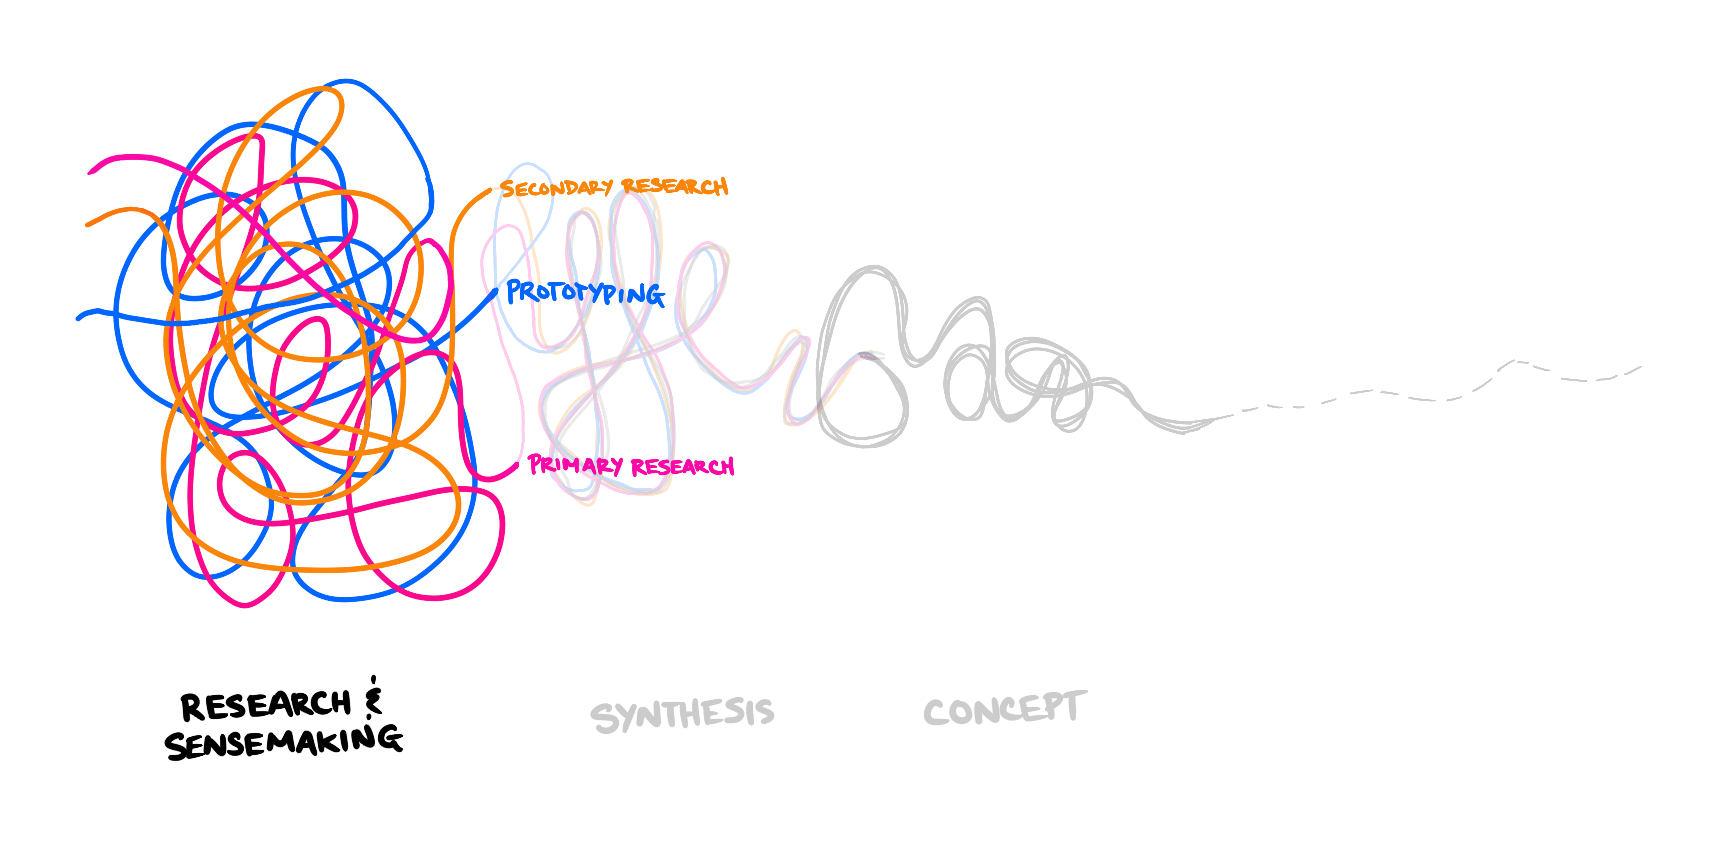 SECONDARY RESEARCH
PROTOTYPING
PRIMARY RESEARCH
RESEARCH &
SENSEMAKING
SYNTHESIS
CONCEPT